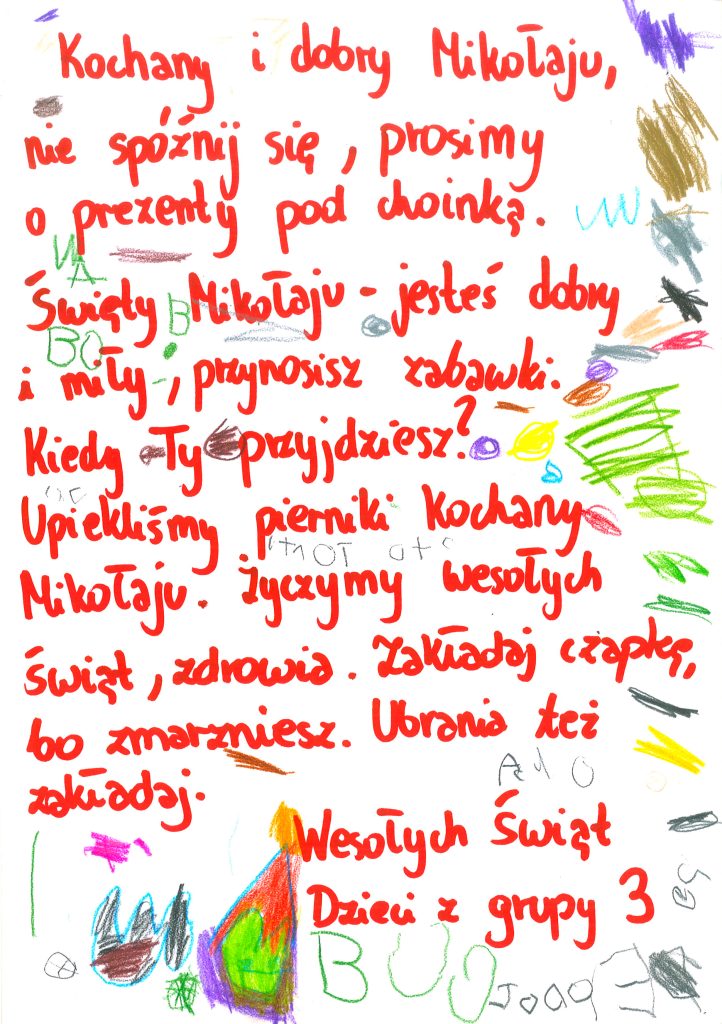 Kochany i dobry Mikołaju,
nie spóźnij się, prosimy
o prezenty pod choinką.
Święty Mikołaju - jesteś dobry
i miły, przynosisz zabawki.
Kiedy Ty przyjdziesz?
Upiekliśmy pierniki Kochany
Mikołaju. Życzymy wesołych
świąt, zdrowia. Zakładaj czapkę,
bo zmarzniesz. Ubrania też
zakładaj.
Wesołych Świąt
Dzieci z grupy 3